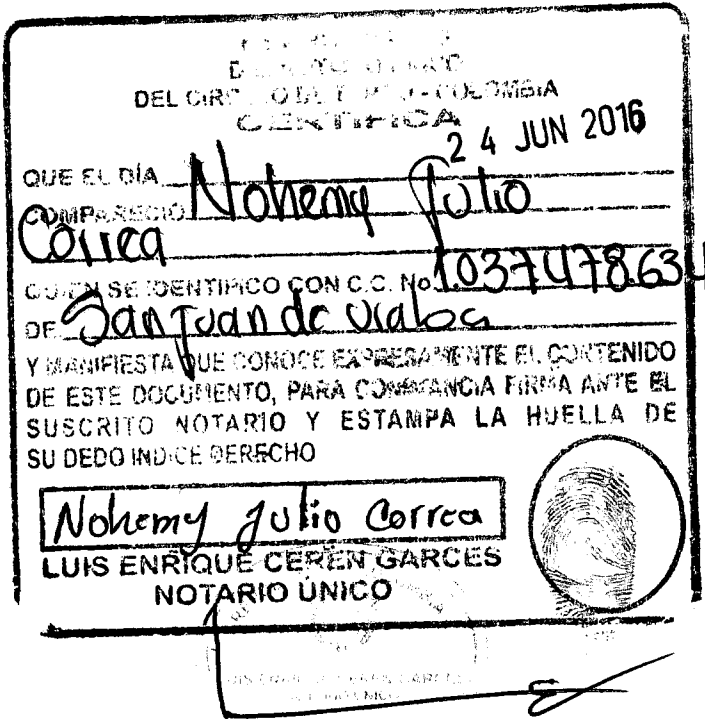 DEL
COLOMBIA
CERTIFICA
24 JUN 2016
QUE EL DÍA
COMPARECIÓ Nohemy Julio
Correa
QUIEN SE IDENTIFICO CON C.C. No. 1.037478634
DE San Juan de
Y MANIFIESTA QUE CONOCE EXPRESAMENTE EL CONTENIDO
DE ESTE DOCUMENTO, PARA CONSTANCIA FIRMA ANTE EL
SUSCRITO NOTARIO Y ESTAMPA LA HUELLA DE
SU DEDO INDICE DERECHO
Nohemy Julio Correa
LUIS ENRIQUE CEREN GARCES
NOTARIO ÚNICO